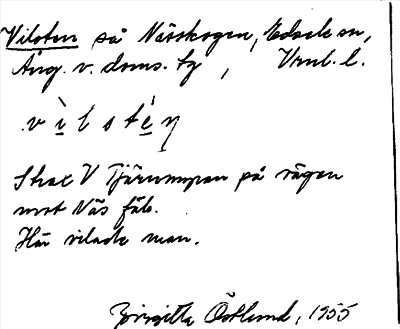 Vilsten på Nässkogen, Edsele sn,
Ång. v. doms. tg, Vrnl. l.
v ì l s t é ŋ
Strax V Tjärnmyran på vägen
mot Näs fäb.
Här vilade man.
Birgitta Östlund, 1955